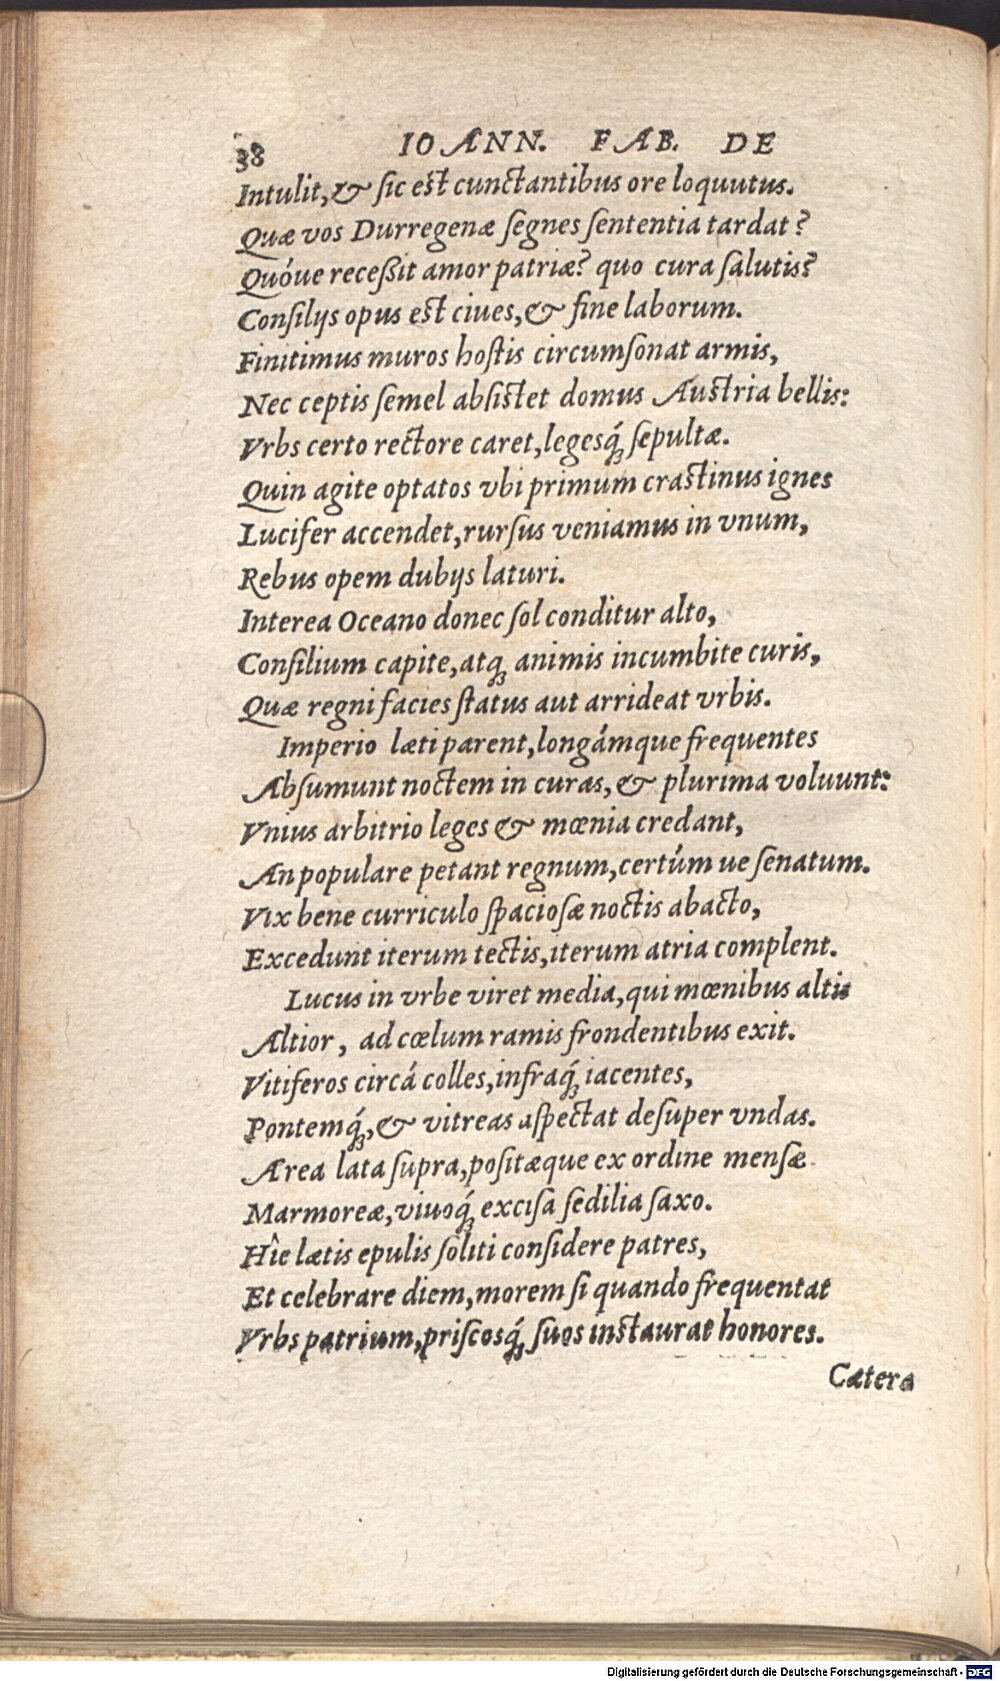 38 IOANN. FAB. DE
Intulit, & sic est cunctantibus ore loquutus.
Quæ vos Durregenæ segnes sententia tardat?
Quóue recessit amor patriæ? quo cura salutis?
Consilijs opus est ciues, & fine laborum.
Finitimus muros hostis circumsonat armis,
Nec ceptis semel absistet domus Austria bellis:
Vrbs certo rectore caret, legesq́; sepultæ.
Quin agite optatos vbi primum crastinus ignes
Lucifer accendet, rursus veniamus in vnum,
Rebus opem dubijs laturi.
Interea Oceano donec sol conditur alto,
Consilium capite, atq; animis incumbite curis,
Quæ regni facies status aut arrideat vrbis.
Imperio læti parent, longámque frequentes
Absumunt noctem in curas, & plurima voluunt:
Vnius arbitrio leges & mœnia credant,
An populare petant regnum, certúm ue senatum.
Vix bene curriculo spaciosæ noctis abacto,
Excedunt iterum tectis, iterum atria complent.
Lucus in vrbe viret media, qui mœnibus altis
Altior, ad cœlum ramis frondentibus exit.
Vitiferos circá colles, infraq́; iacentes,
Pontemq́;, & vitreas aspectat desuper vndas.
Area lata supra, positæque ex ordine mensæ
Marmoreæ, viuoq́; excisa sedilia saxo.
Hîc lætis epulis soliti considere patres,
Et celebrare diem, morem si quando frequentat
Vrbs patrium, priscosq́; suos instaurat honores.
Cætera
Digitalisierung gefördert durch die Deutsche Forschungsgemeinschaft - DFG